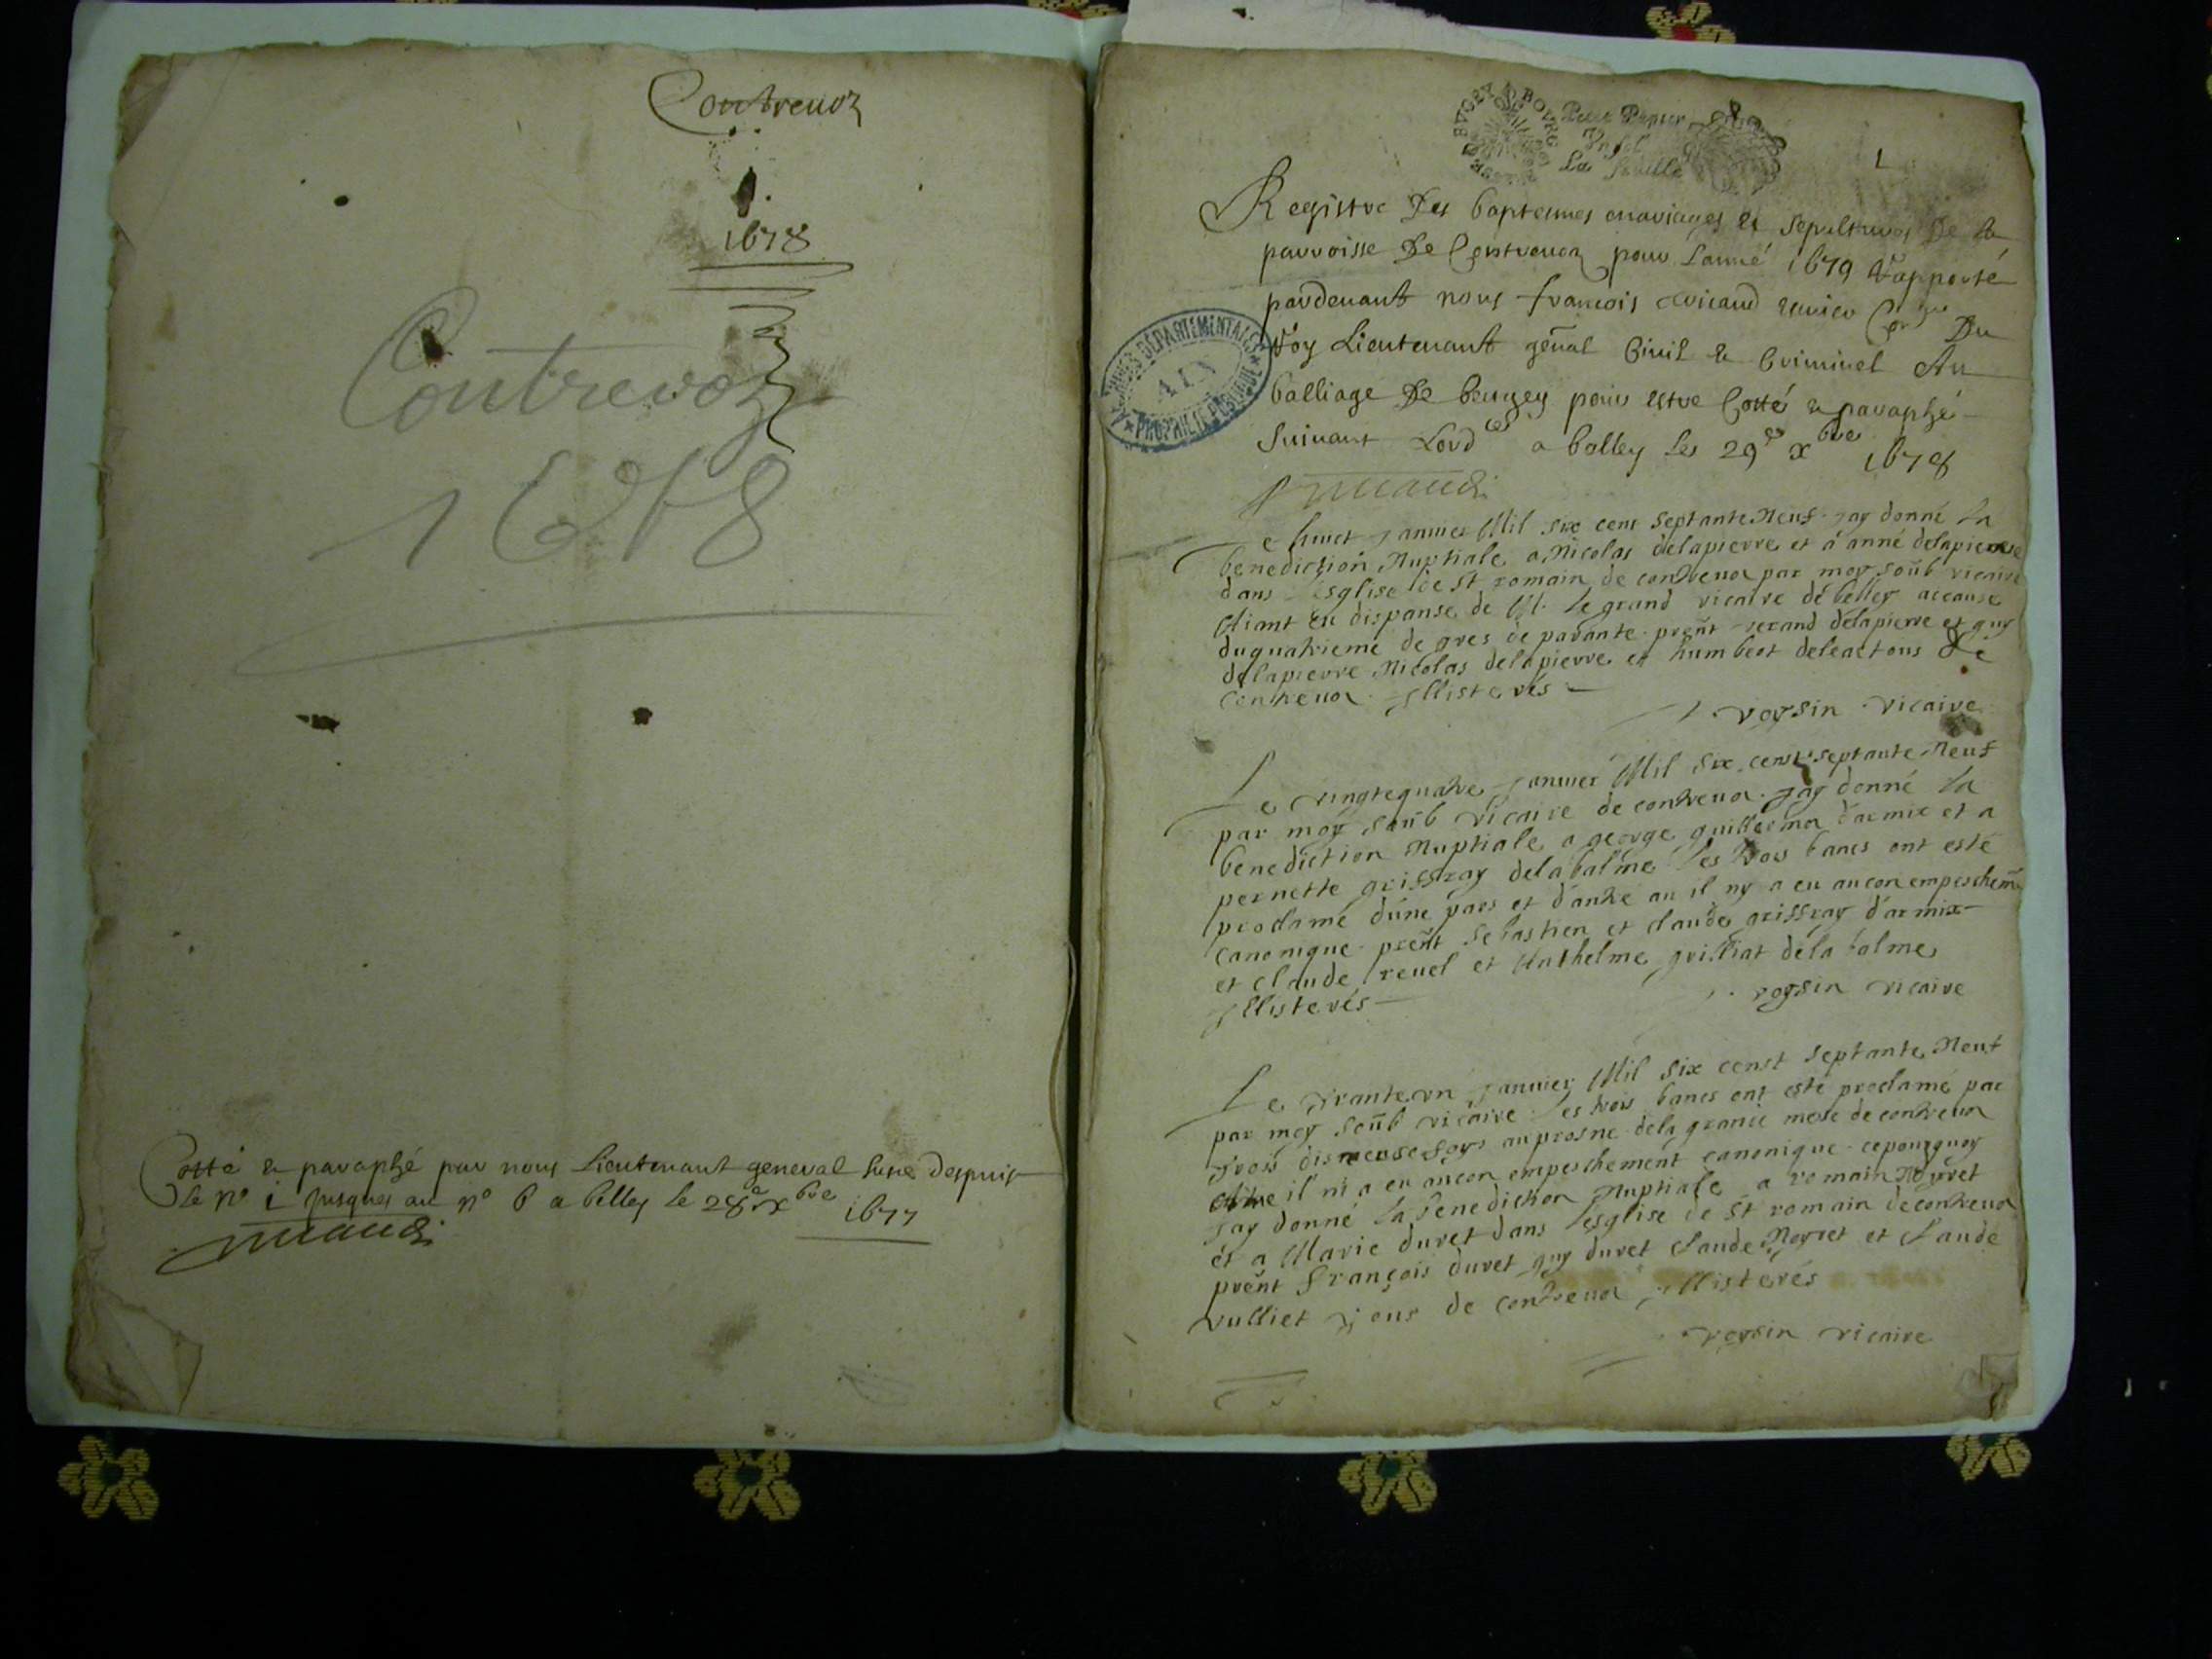 Contrevoz
1678
Contrevoz
1678
Cotté & paraphé par nous Lieutenant general susd despuis
le n° 1 jusques au n° 6 a belley le 28e xbre 1677
BVGEY BOVRG
Petit Papier
La feuille
1
Registre Des baptesmes mariages et sepultures De la
parroisse De Contrevoz pour l'anné 1679 Rapporté
pardevant nous francois Du
Roy Lieutenant gñal Civil & Criminel Au
balliage De beugey pour estre Cotté & paraphé
suivant Lord ces a belley les 29es xbre 1678
ARCHIVES DÉPARTEMENTALES
AIN
PROPRIÉTÉ PUBLIQUE
Le huict janvier Mil six cent septante Neuf jay donné la
benediction Nuptiale a Nicolas delapierre et a anné delapierre
dans Esglise de St romain de contrevoz par moy soub vicaire
Aiant eu dispanse de M. le grand vicaire de belley accause
du quatrieme de gres de parante preñt delapierre et guy
delapierre Nicolas delapierre et humbert tous de
contrevoz Illisterés
voysin vicaire
Le vingtequatre janvier Mil six cent septante Neuf
par moy soub vicaire de contrevoz jay donné la
benediction Nuptiale a george guillermoz darmix et a
pernette griffray delabalme les trois bancs ont esté
proclamé dune pars et dautre au il ny a eu aucon empeschemẽ
canonique preñt sebastien et claude griffray darmix
et claude revel et Anthelme grilliat dela balme
Illisterés
voysin vicaire
Le trante un janvier Mil six censt septante Neuf
par moy soub vicaire les trois bancs ont esté proclamé par
trois au prosne dela grande mese de contrevoz
il ni a eu aucon empeschement canonique cepourquoy
jay donné la benediction Nuptiale a romain Noyret
et a Marie duret dans lesglise de St romain de contrevoz
preñt François duret guy duret Claude Noyret et Claude
vulliet tous de contrevoz Illisterés
voysin vicaire